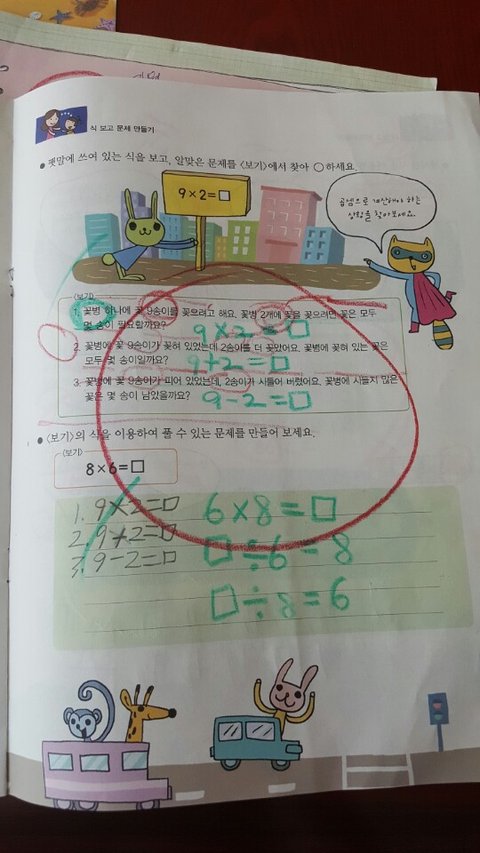 식 보고 문제 만들기
• 팻말에 쓰여 있는 식을 보고, 알맞은 문제를 〈보기〉에서 찾아 ○하세요.
9×2=□
곱셈으로 계산해야 하는
상황을 찾아보세요.
〈보기〉
1. 꽃병 하나에 꽃 9송이를 꽂으려고 해요. 꽃병 2개에 꽃을 꽂으려면 꽃은 모두
몇 송이 필요할까요?
9×2=□
2. 꽃병에 꽃 9송이가 꽂혀 있었는데 2송이를 더 꽂았어요. 꽃병에 꽂혀 있는 꽃은
모두 몇 송이일까요?
9+2=□
3. 꽃병에 꽃 9송이가 피어 있었는데, 2송이가 시들어 버렸어요. 꽃병에 시들지 않은
꽃은 몇 송이 남았을까요?
9-2=□
• 〈보기〉의 식을 이용하여 풀 수 있는 문제를 만들어 보세요.
〈보기〉
8×6=□
1. 9×2=□
6×8=□
2. 9+2=□
□÷6=8
3. 9-2=□
□÷8=6